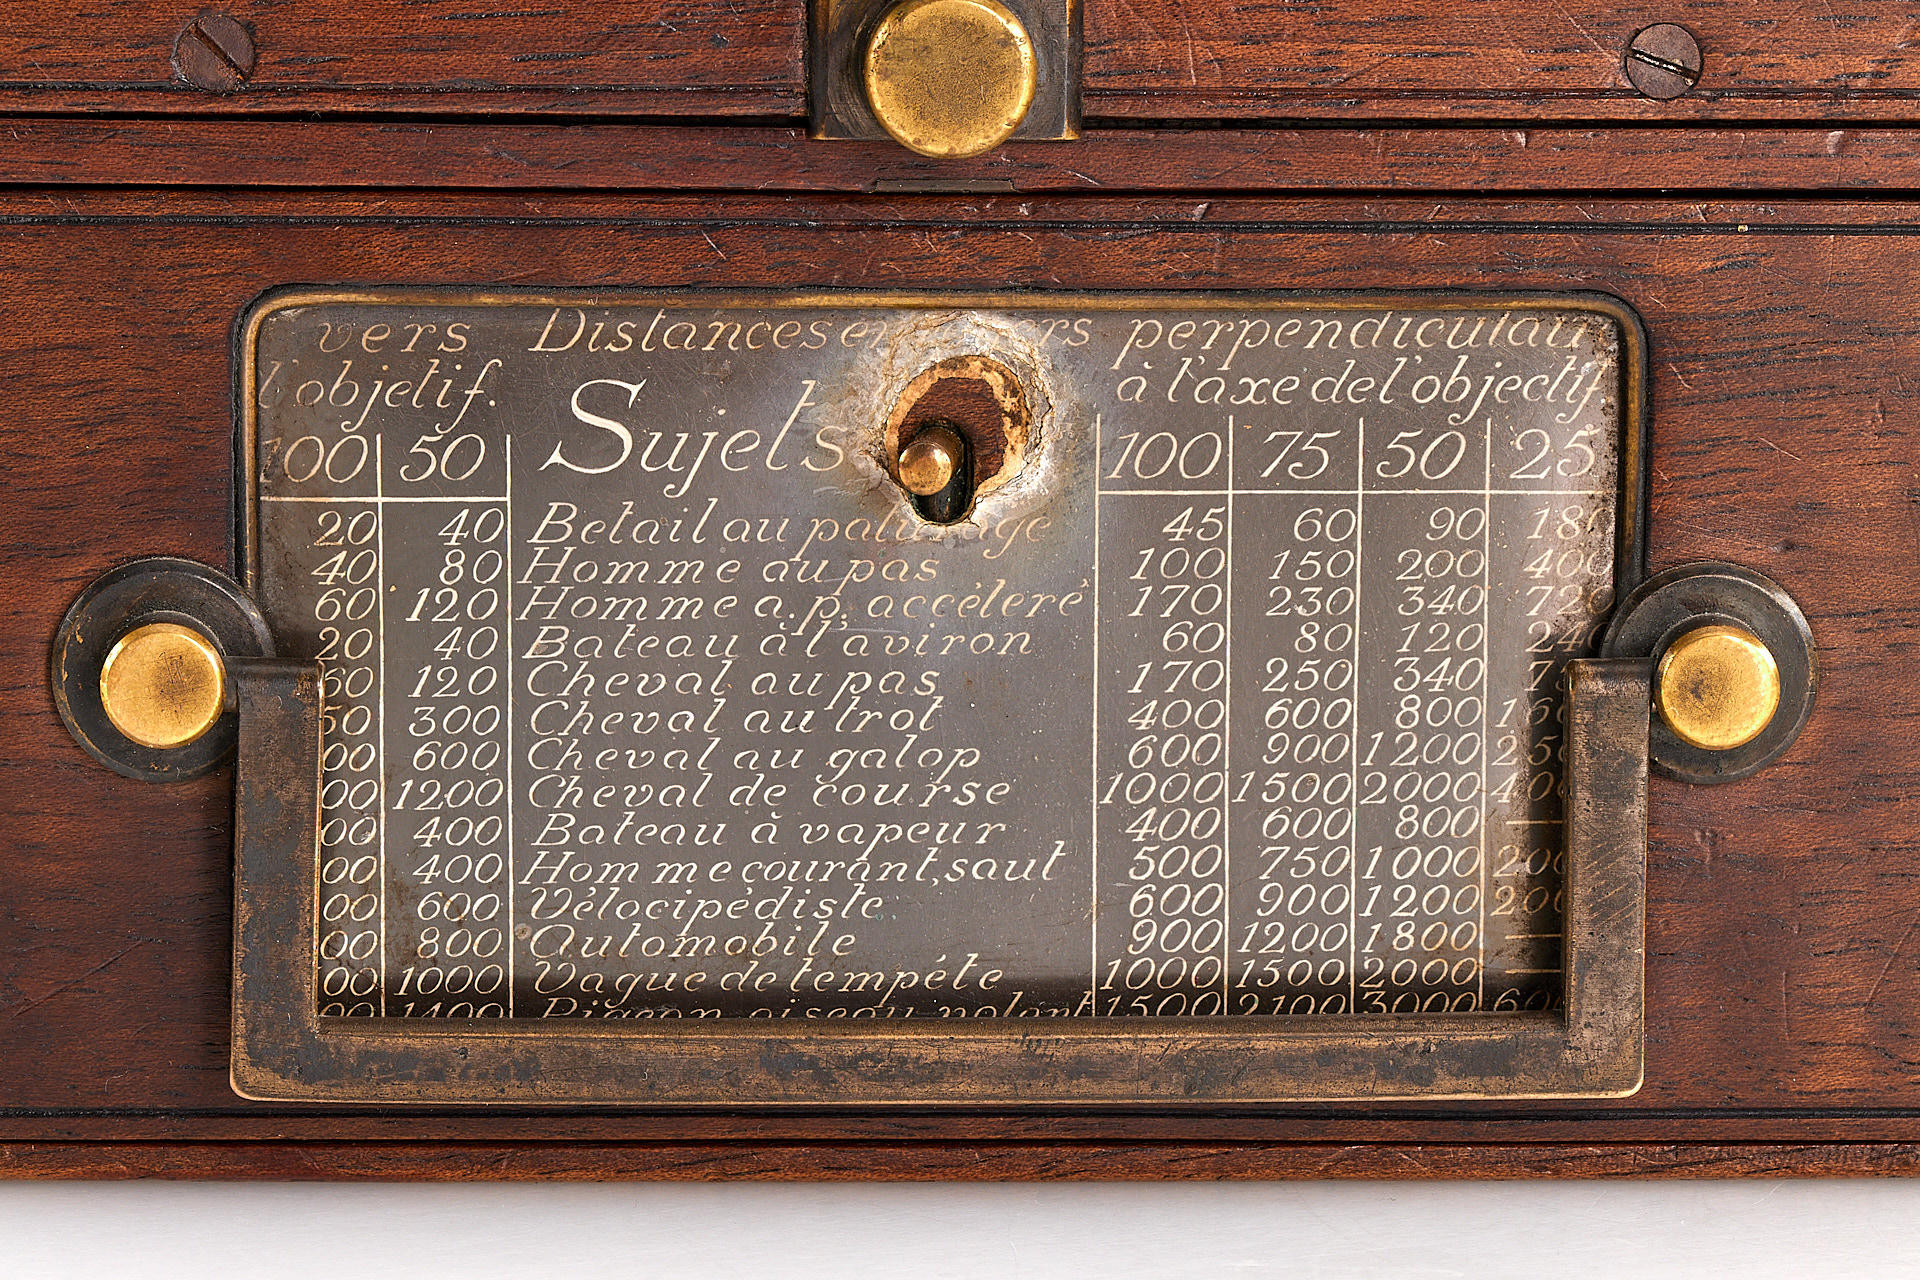 vers Distances perpendiculair
l'objetif. Sujets à l'axe de l'objectif
100 50 100 75 50 25
20 40 Betail au paturage 45 60 90 18
40 80 Homme au pas 100 150 200 400
60 120 Homme a.p. accéleré 170 230 340 720
20 40 Bateau à l'aviron 60 80 120 240
60 120 Cheval au pas 170 250 340 7
50 300 Cheval au trot 400 600 800 160
00 600 Cheval au galop 600 900 1200 250
00 1200 Cheval de course 1000 1500 2000 400
00 400 Bateau à vapeur 400 600 800 —
00 400 Homme courant, saut 500 750 1000 200
00 600 Vélocipédiste 600 900 1200 200
00 800 Automobile 900 1200 1800 —
00 1000 Vague de tempéte 1000 1500 2000 —
00 1400 Pigeon, oiseau volant 1500 2100 3000 600